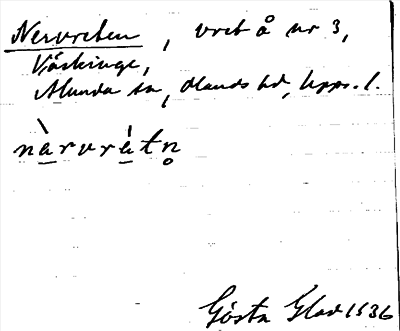 Nervreten, vret å nr 3,
Väskinge,
Alunda sn, Olands hd, Upps. l.
nàrvrètn̥
Gösta Glad 1936